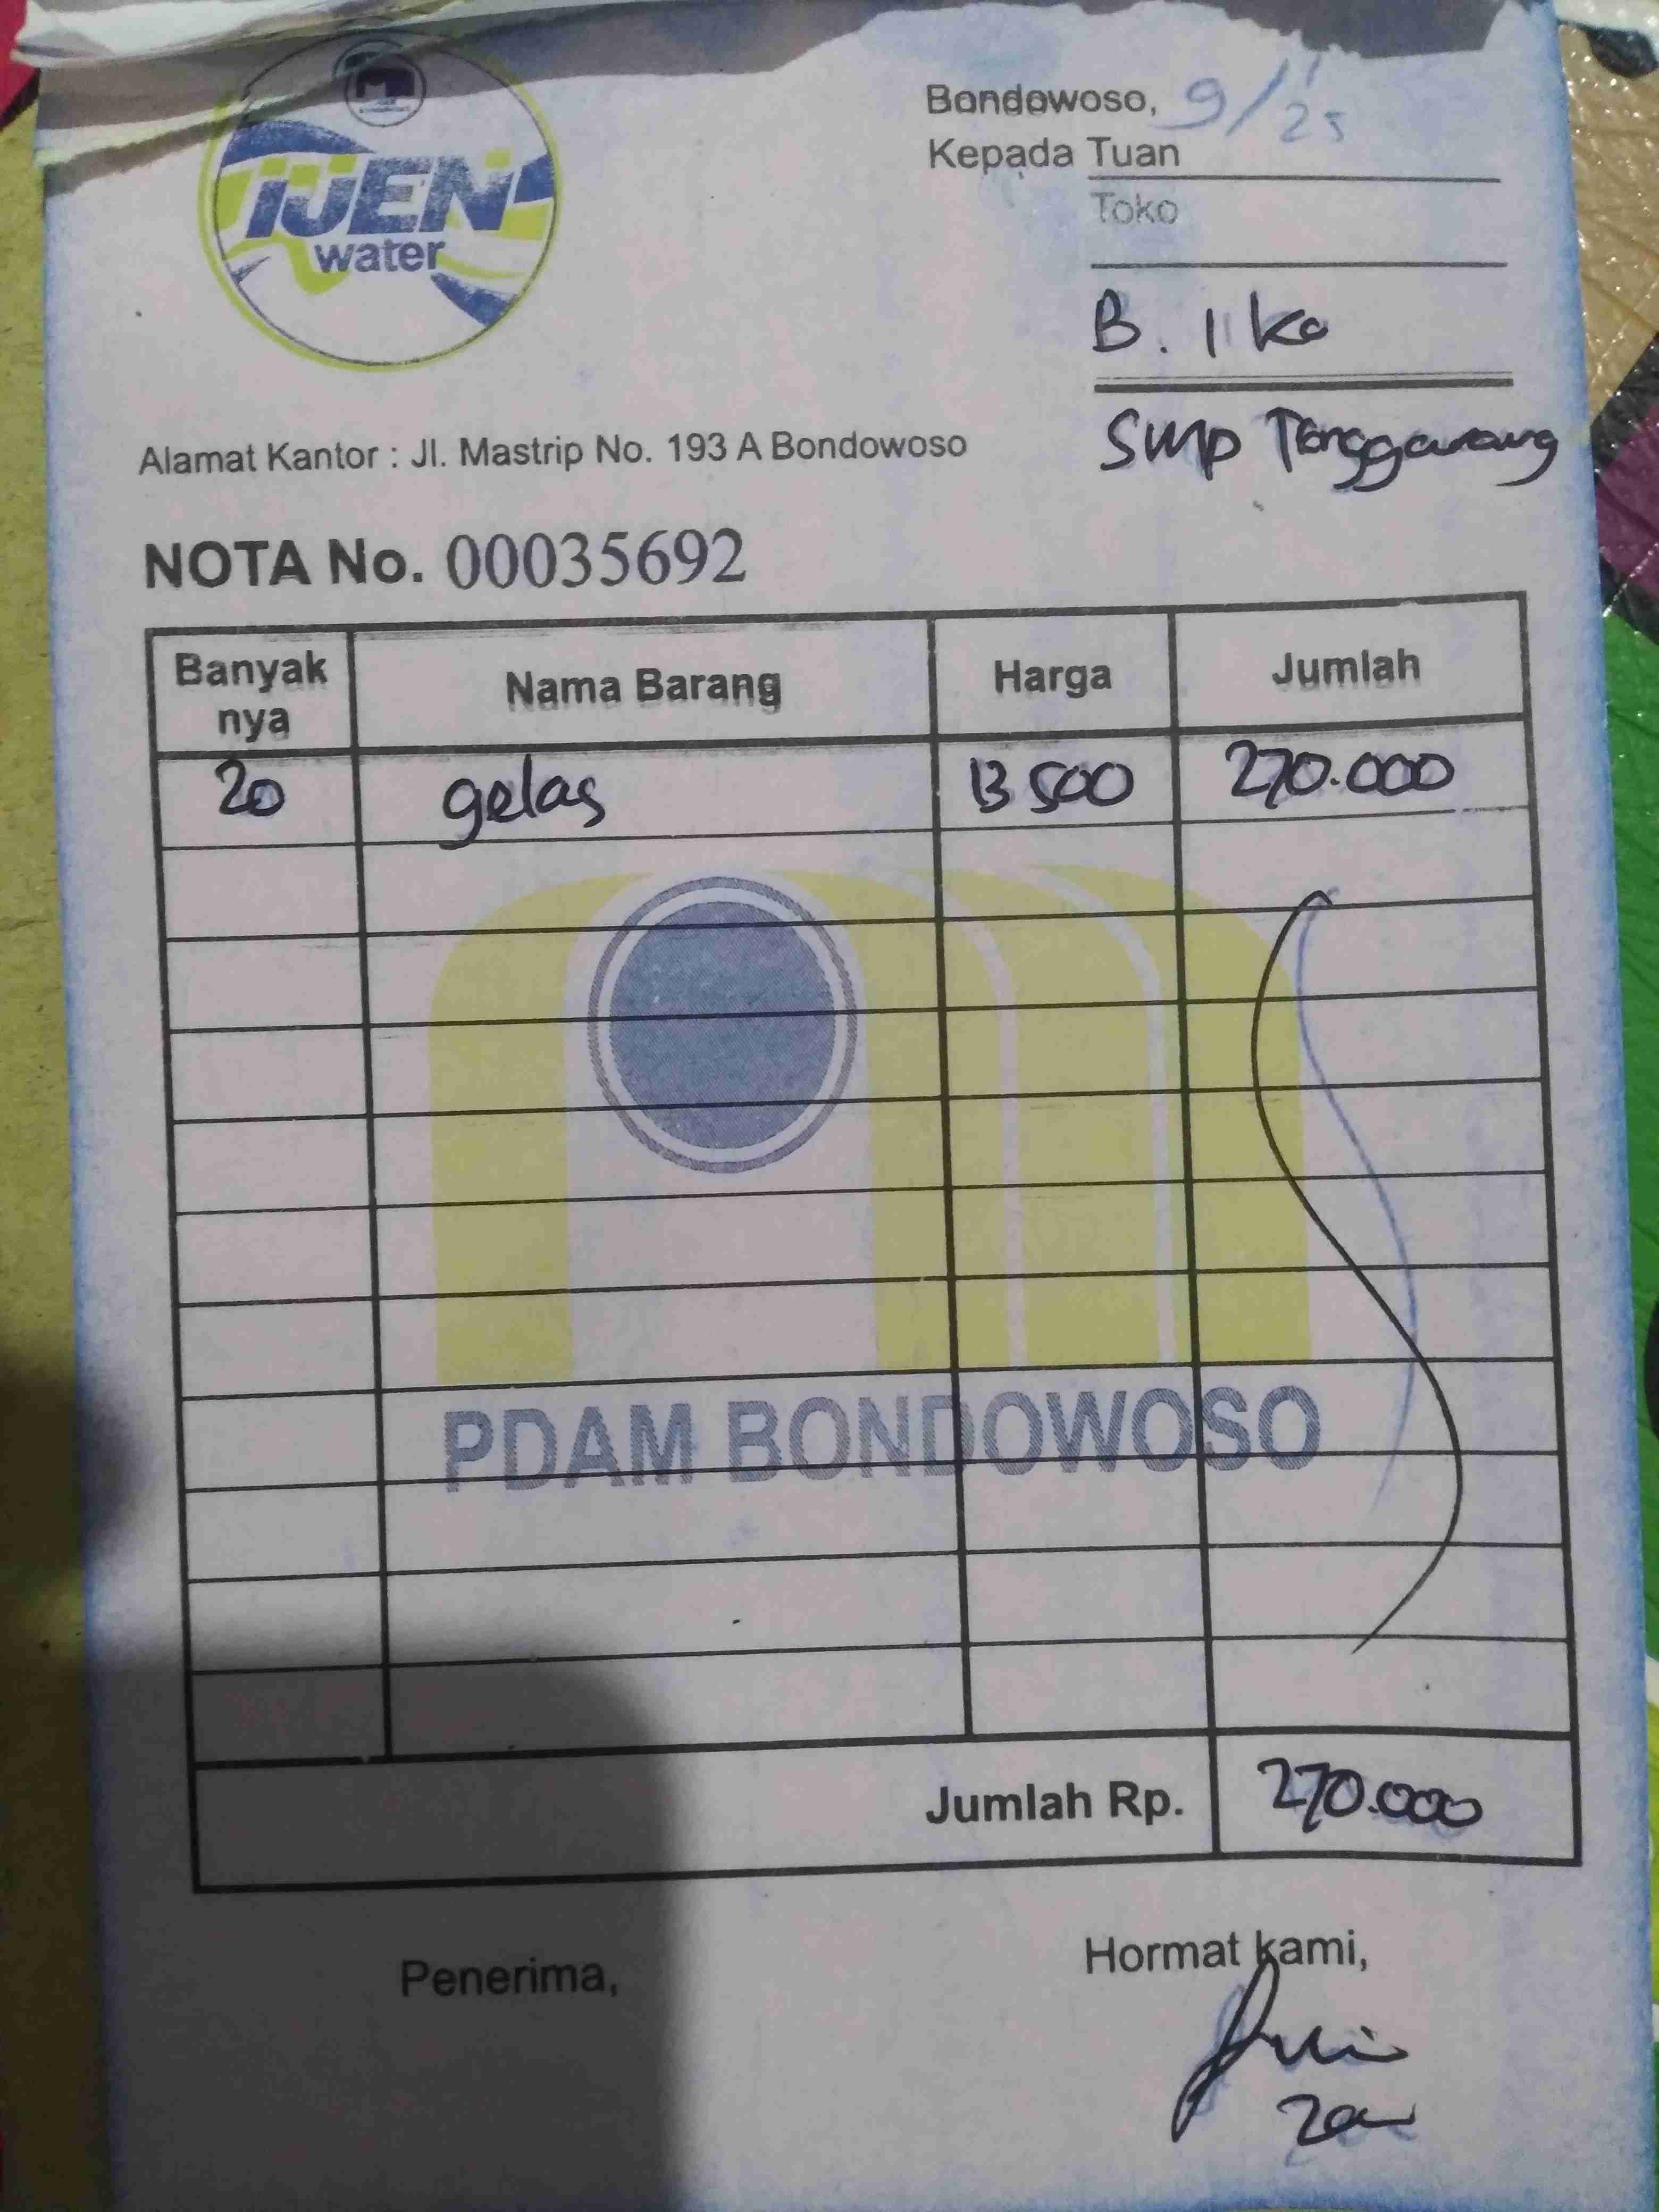 IJEN
water
Bondowoso, 9/25
Kepada Tuan
Toko
B. Ika
SMP Tenggarang
Alamat Kantor : Jl. Mastrip No. 193 A Bondowoso
NOTA No. 00035692
Banyak nya Nama Barang Harga Jumlah
20 gelas 13 500 270.000
PDAM BONDOWOSO
Jumlah Rp. 270.000
Penerima,
Hormat kami,